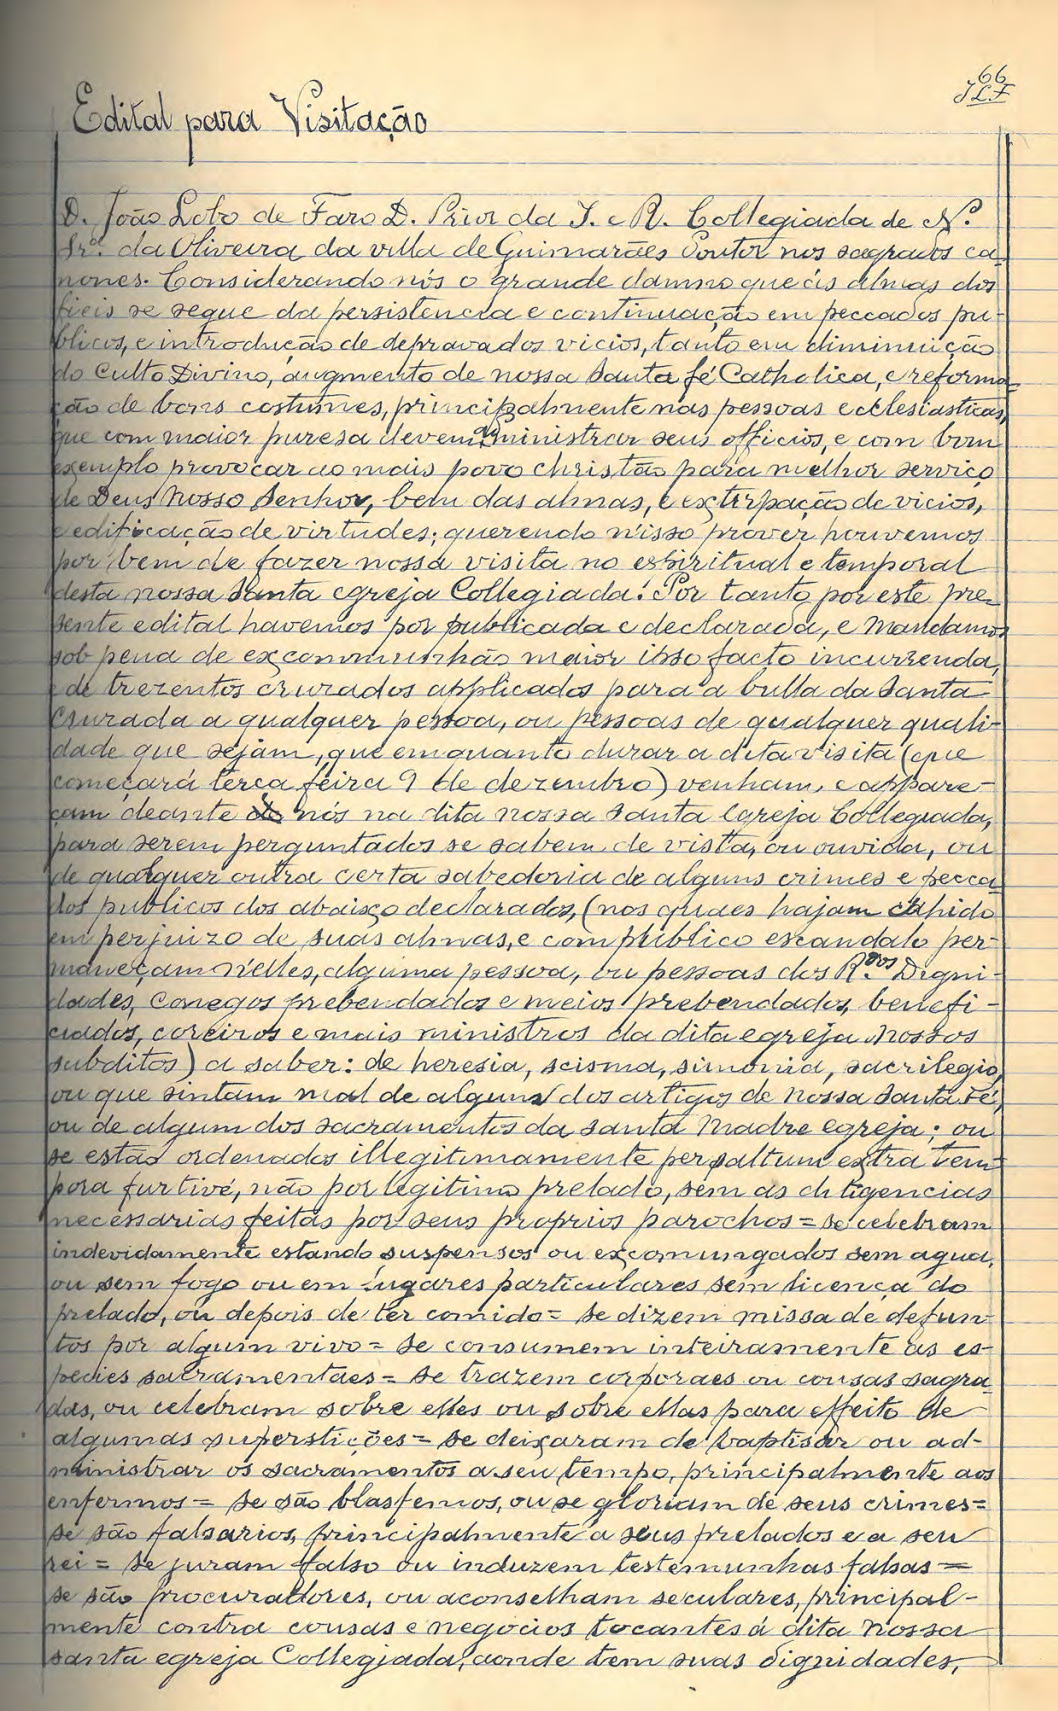 66
JLF
Edital para Visitação
D. João Lobo de Faro D. Prior da I. e R. Collegiada de N.
Srª. da Oliveira da villa de Guimarães Doutor nos sagrados ca-
nones. Considerando nós o grande damno que ás almas dos
fieis se segue da persistencia e continuação em peccados pu-
blicos, e introducção de depravados vicios, tanto em diminuição
do Culto Divino, augmento de nossa Santa fé Catholica, e reforma-
ção de bons costumes, principalmente nas pessoas ecclesiasticas,
que com maior puresa devem administrar seus officios, e com bom
exemplo provocar ao mais povo christão para melhor serviço
de Deus Nosso Senhor, bem das almas, e extirpação de vicios,
e edificação de virtudes; querendo n'isso prover houvemos
por bem de fazer nossa visita no espiritual e temporal
desta nossa Santa egreja Collegiada. Por tanto por este pre-
sente edital havemos por publicada e declarada, e Mandamos
sob pena de excommunhão maior ipso facto incurrenda,
e de trezentos cruzados applicados para a bulla da Santa
Cruzada a qualquer pessoa, ou pessoas de qualquer quali-
dade que sejam, que emquanto durar a dita visita (que
começará terça feira 9 de dezembro) venham, e appare-
çam deante de nós na dita nossa Santa Egreja Collegiada,
para serem perguntados se sabem de vista, ou ouvida, ou
de qualquer outra certa sabedoria de alguns crimes e pecca-
dos publicos dos abaixo declarados, (nos quaes hajam cahido
em perjuizo de suas almas, e com publico escandalo per-
maneçam n'elles, alguma pessoa, ou pessoas dos R.dos Digni-
dades, conegos prebendados e meios prebendados, benefi-
ciados, coreiros e mais ministros da dita egreja Nossos
subditos) a saber: de heresia, scisma, simonia, sacrilegio,
ou que sintam mal de alguns dos artigos de Nossa Santa Fé,
ou de algum dos sacramentos da santa Madre egreja; ou
se estão ordenados illegitimamente per saltum extra tem-
pora furtivé, não por legitimo prelado, sem as diligencias
necessarias feitas por seus proprios parochos = se celebram
indevidamente estando suspensos ou excomungados sem agua,
ou sem fogo ou em lugares particulares sem licença do
prelado, ou depois de ter comido = se dizem missa de defun-
tos por algum vivo = se consumem inteiramente as es-
pecies sacramentaes = se trazem corporaes ou cousas sagra-
das, ou celebram sobre elles ou sobre ellas para effeito de
algumas superstições = se deixaram de baptisar ou ad-
ministrar os sacramentos a seu tempo, principalmente aos
enfermos = se são blasfemos, ou se gloriam de seus crimes =
se são falsarios, principalmente a seus prelados e a seu
rei = se juram falso ou induzem testemunhas falsas =
se são procuradores, ou aconselham seculares, principal-
mente contra cousas e negocios tocantes á dita Nossa
santa egreja Collegiada, aonde tem suas dignidades,